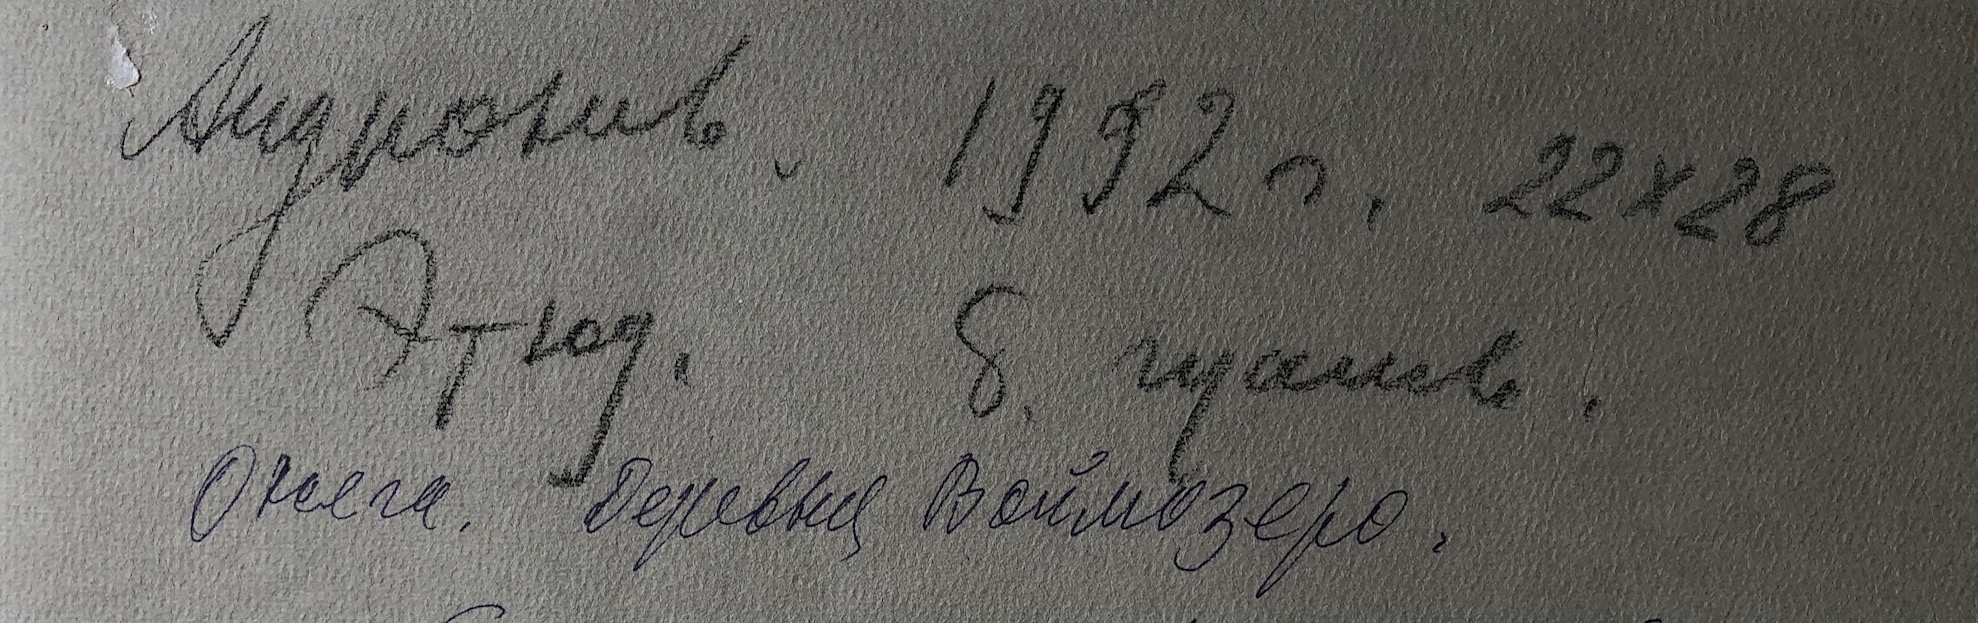 Андронов. 1992 г. 22х28
Этюд. б. гуашь.
Онега. Деревня Воймозеро.